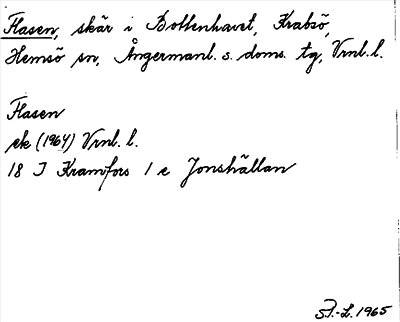 Flasen, skär i Bottenhavet, Krabsö,
Hemsö sn, Ångermanl. s. doms. tg, Vrnl. l.
Flasen
ek (1964) Vrnl. l.
18 I Kramfors 1 e Jonshällan
1965